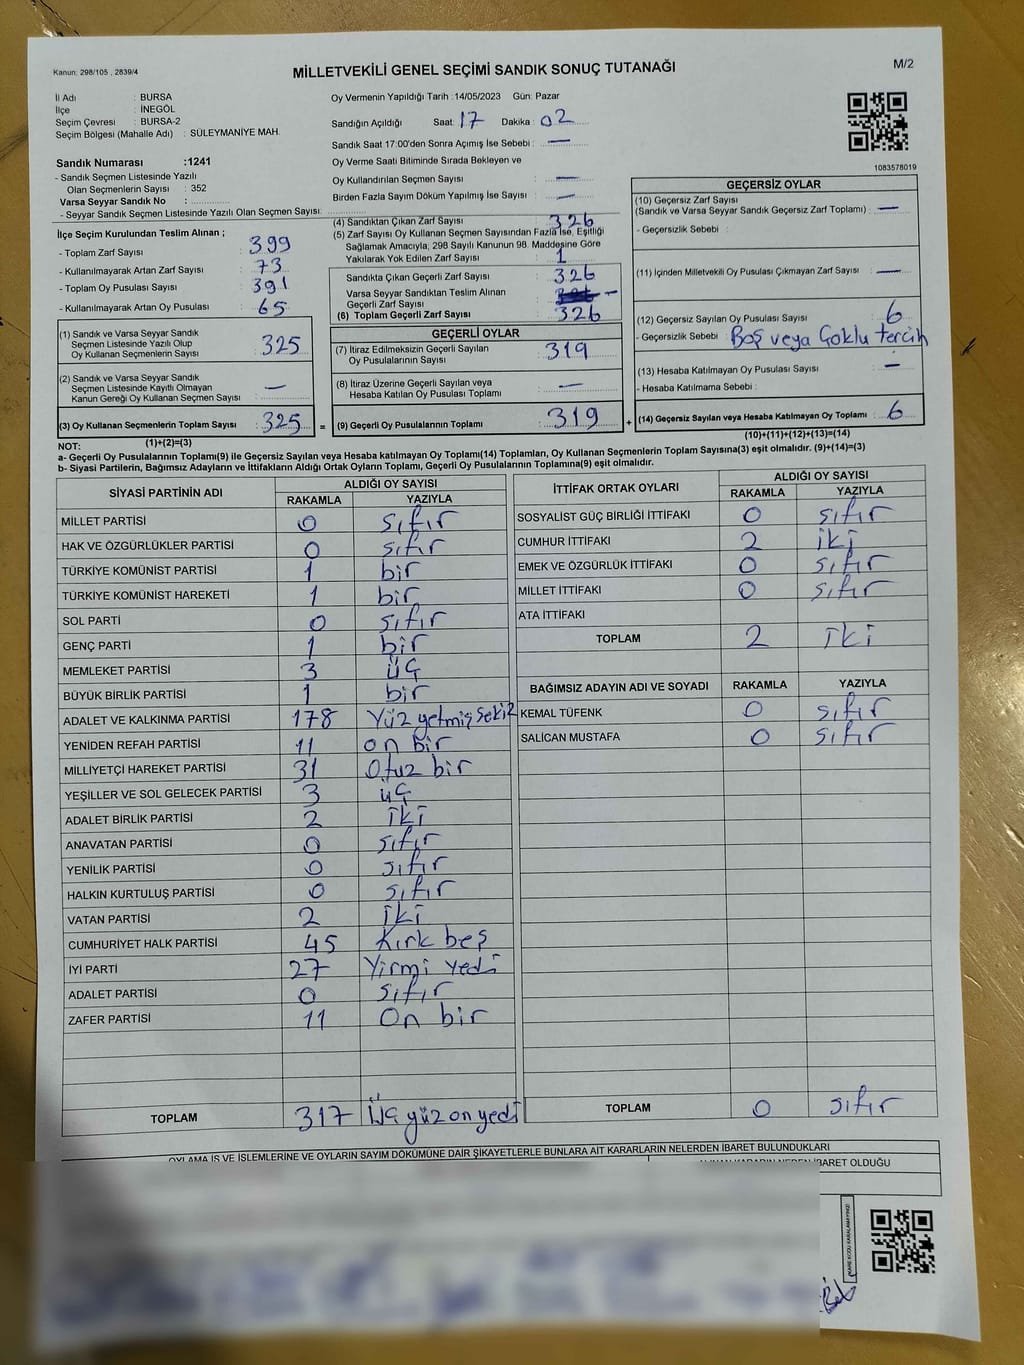 Kanun: 298/105 , 2839/4
MİLLETVEKİLİ GENEL SEÇİMİ SANDIK SONUÇ TUTANAĞI
M/2
İl Adı : BURSA
İlçe : İNEGÖL
Seçim Çevresi : BURSA-2
Seçim Bölgesi (Mahalle Adı) : SÜLEYMANİYE MAH.
Sandık Numarası :1241
- Sandık Seçmen Listesinde Yazılı
Olan Seçmenlerin Sayısı : 352
Varsa Seyyar Sandık No :
- Seyyar Sandık Seçmen Listesinde Yazılı Olan Seçmen Sayısı:
Oy Vermenin Yapıldığı Tarih :14/05/2023 Gün: Pazar
Sandığın Açıldığı Saat: 17 Dakika : 02
Sandık Saat 17:00'den Sonra Açımış İse Sebebi : —
Oy Verme Saati Bitiminde Sırada Bekleyen ve
Oy Kullandırılan Seçmen Sayısı : —
Birden Fazla Sayım Döküm Yapılmış İse Sayısı : —
1083578019
İlçe Seçim Kurulundan Teslim Alınan ;
- Toplam Zarf Sayısı : 399
- Kullanılmayarak Artan Zarf Sayısı : 73
- Toplam Oy Pusulası Sayısı : 391
- Kullanılmayarak Artan Oy Pusulası : 65
(1) Sandık ve Varsa Seyyar Sandık
Seçmen Listesinde Yazılı Olup
Oy Kullanan Seçmenlerin Sayısı : 325
(2) Sandık ve Varsa Seyyar Sandık
Seçmen Listesinde Kayıtlı Olmayan
Kanun Gereği Oy Kullanan Seçmen Sayısı : —
(3) Oy Kullanan Seçmenlerin Toplam Sayısı : 325
(1)+(2)=(3)
(4) Sandıktan Çıkan Zarf Sayısı : 326
(5) Zarf Sayısı Oy Kullanan Seçmen Sayısından Fazla İse, Eşitliği
Sağlamak Amacıyla; 298 Sayılı Kanunun 98. Maddesine Göre
Yakılarak Yok Edilen Zarf Sayısı : 1
Sandıkta Çıkan Geçerli Zarf Sayısı : 326
Varsa Seyyar Sandıktan Teslim Alınan
Geçerli Zarf Sayısı : —
(6) Toplam Geçerli Zarf Sayısı : 326
GEÇERLİ OYLAR
(7) İtiraz Edilmeksizin Geçerli Sayılan
Oy Pusulalarının Sayısı : 319
(8) İtiraz Üzerine Geçerli Sayılan veya
Hesaba Katılan Oy Pusulası Toplamı : —
= (9) Geçerli Oy Pusulalarının Toplamı : 319 +
GEÇERSİZ OYLAR
(10) Geçersiz Zarf Sayısı
(Sandık ve Varsa Seyyar Sandık Geçersiz Zarf Toplamı) : —
- Geçersizlik Sebebi :
(11) İçinden Milletvekili Oy Pusulası Çıkmayan Zarf Sayısı : —
(12) Geçersiz Sayılan Oy Pusulası Sayısı : 6
- Geçersizlik Sebebi : Boş veya Çoklu tercih
(13) Hesaba Katılmayan Oy Pusulası Sayısı : —
- Hesaba Katılmama Sebebi :
(14) Geçersiz Sayılan veya Hesaba Katılmayan Oy Toplamı : 6
(10)+(11)+(12)+(13)=(14)
NOT:
a- Geçerli Oy Pusulalarının Toplamı(9) ile Geçersiz Sayılan veya Hesaba Katılmayan Oy Toplamı(14) Toplamları, Oy Kullanan Seçmenlerin Toplam Sayısına(3) eşit olmalıdır. (9)+(14)=(3)
b- Siyasi Partilerin, Bağımsız Adayların ve İttifakların Aldığı Ortak Oyların Toplamı, Geçerli Oy Pusulalarının Toplamına(9) eşit olmalıdır.
SİYASİ PARTİNİN ADI ALDIĞI OY SAYISI
RAKAMLA YAZIYLA
MİLLET PARTİSİ 0 sıfır
HAK VE ÖZGÜRLÜKLER PARTİSİ 0 sıfır
TÜRKİYE KOMÜNİST PARTİSİ 1 bir
TÜRKİYE KOMÜNİST HAREKETİ 1 bir
SOL PARTİ 0 sıfır
GENÇ PARTİ 1 bir
MEMLEKET PARTİSİ 3 üç
BÜYÜK BİRLİK PARTİSİ 1 bir
ADALET VE KALKINMA PARTİSİ 178 Yüz yetmiş sekiz
YENİDEN REFAH PARTİSİ 11 on bir
MİLLİYETÇİ HAREKET PARTİSİ 31 Otuz bir
YEŞİLLER VE SOL GELECEK PARTİSİ 3 üç
ADALET BİRLİK PARTİSİ 2 iki
ANAVATAN PARTİSİ 0 sıfır
YENİLİK PARTİSİ 0 sıfır
HALKIN KURTULUŞ PARTİSİ 0 sıfır
VATAN PARTİSİ 2 iki
CUMHURİYET HALK PARTİSİ 45 Kırk beş
İYİ PARTİ 27 Yirmi yedi
ADALET PARTİSİ 0 sıfır
ZAFER PARTİSİ 11 On bir
TOPLAM 317 Üç yüz on yedi
İTTİFAK ORTAK OYLARI ALDIĞI OY SAYISI
RAKAMLA YAZIYLA
SOSYALİST GÜÇ BİRLİĞİ İTTİFAKI 0 sıfır
CUMHUR İTTİFAKI 2 iki
EMEK VE ÖZGÜRLÜK İTTİFAKI 0 sıfır
MİLLET İTTİFAKI 0 sıfır
ATA İTTİFAKI
TOPLAM 2 iki
BAĞIMSIZ ADAYIN ADI VE SOYADI RAKAMLA YAZIYLA
KEMAL TÜFENK 0 sıfır
SALİCAN MUSTAFA 0 sıfır
TOPLAM 0 sıfır
OYLAMA İŞ VE İŞLEMLERİNE VE OYLARIN SAYIM DÖKÜMÜNE DAİR ŞİKAYETLERLE BUNLARA AİT KARARLARIN NELERDEN İBARET BULUNDUKLARI
ALINAN KARARIN NEDEN İBARET OLDUĞU